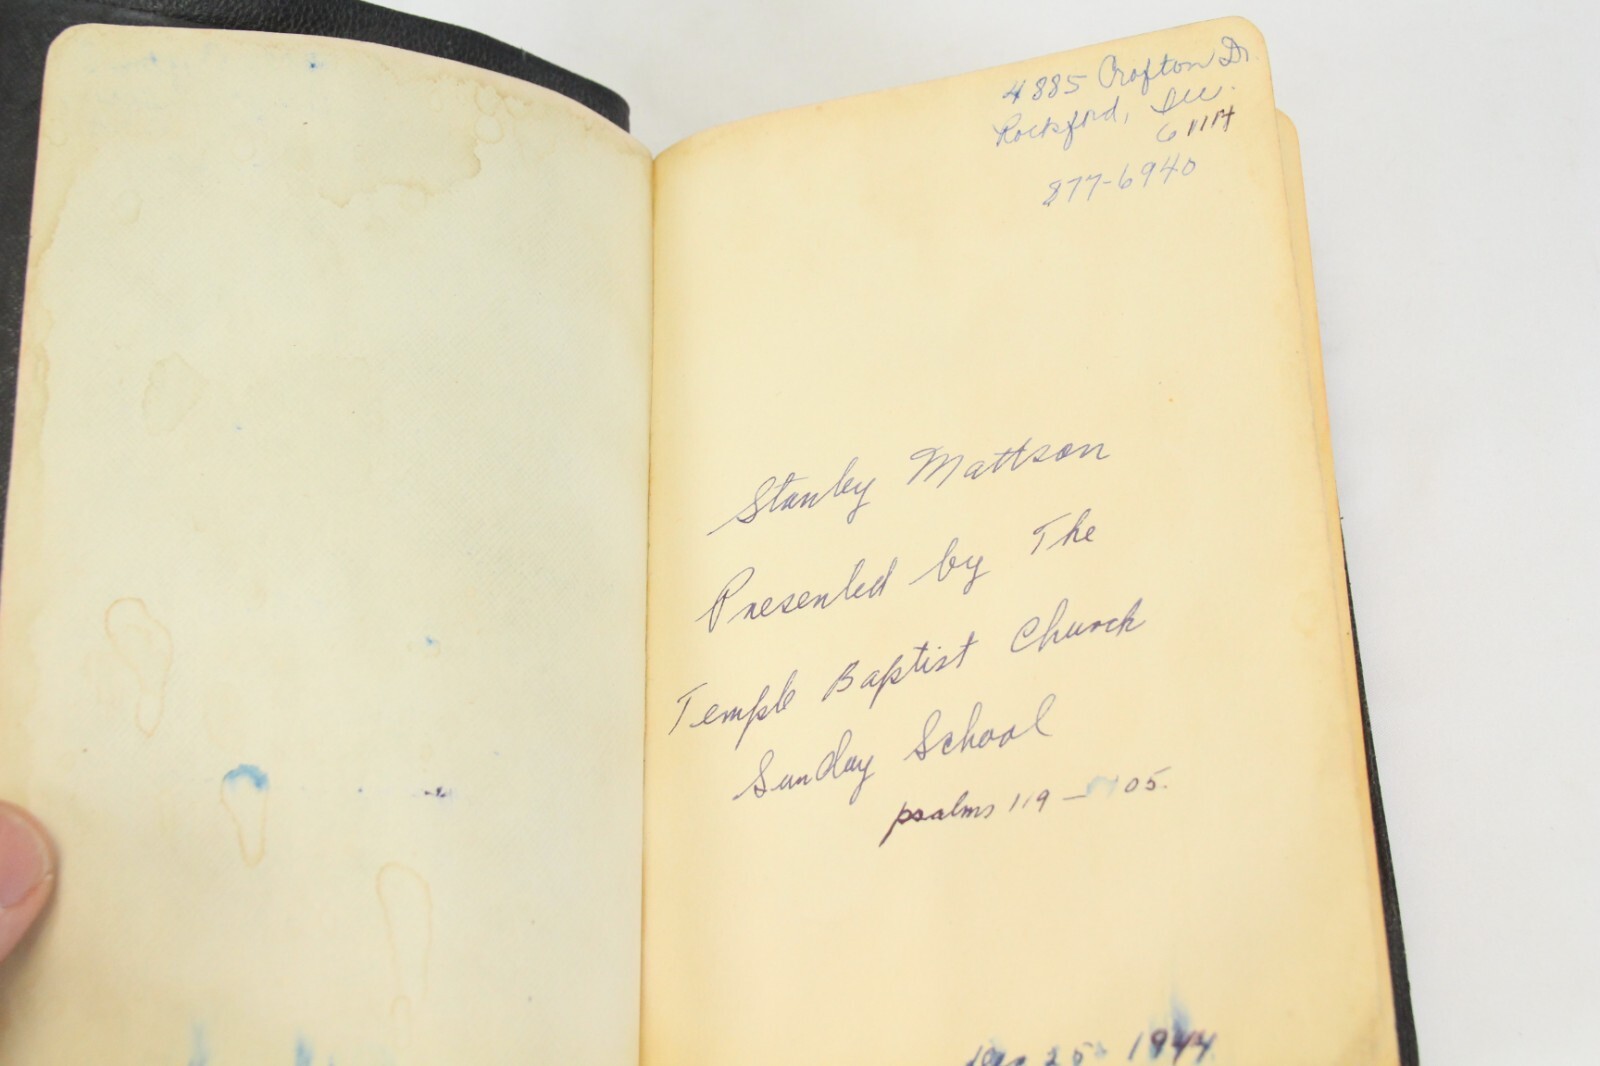 4885 Crofton Dr.
Rockford, Ill.
61114
877-6940
Stanley Mattson
Presented by The
Temple Baptist Church
Sunday School
psalms 119 - 105.
Dec 25 1944